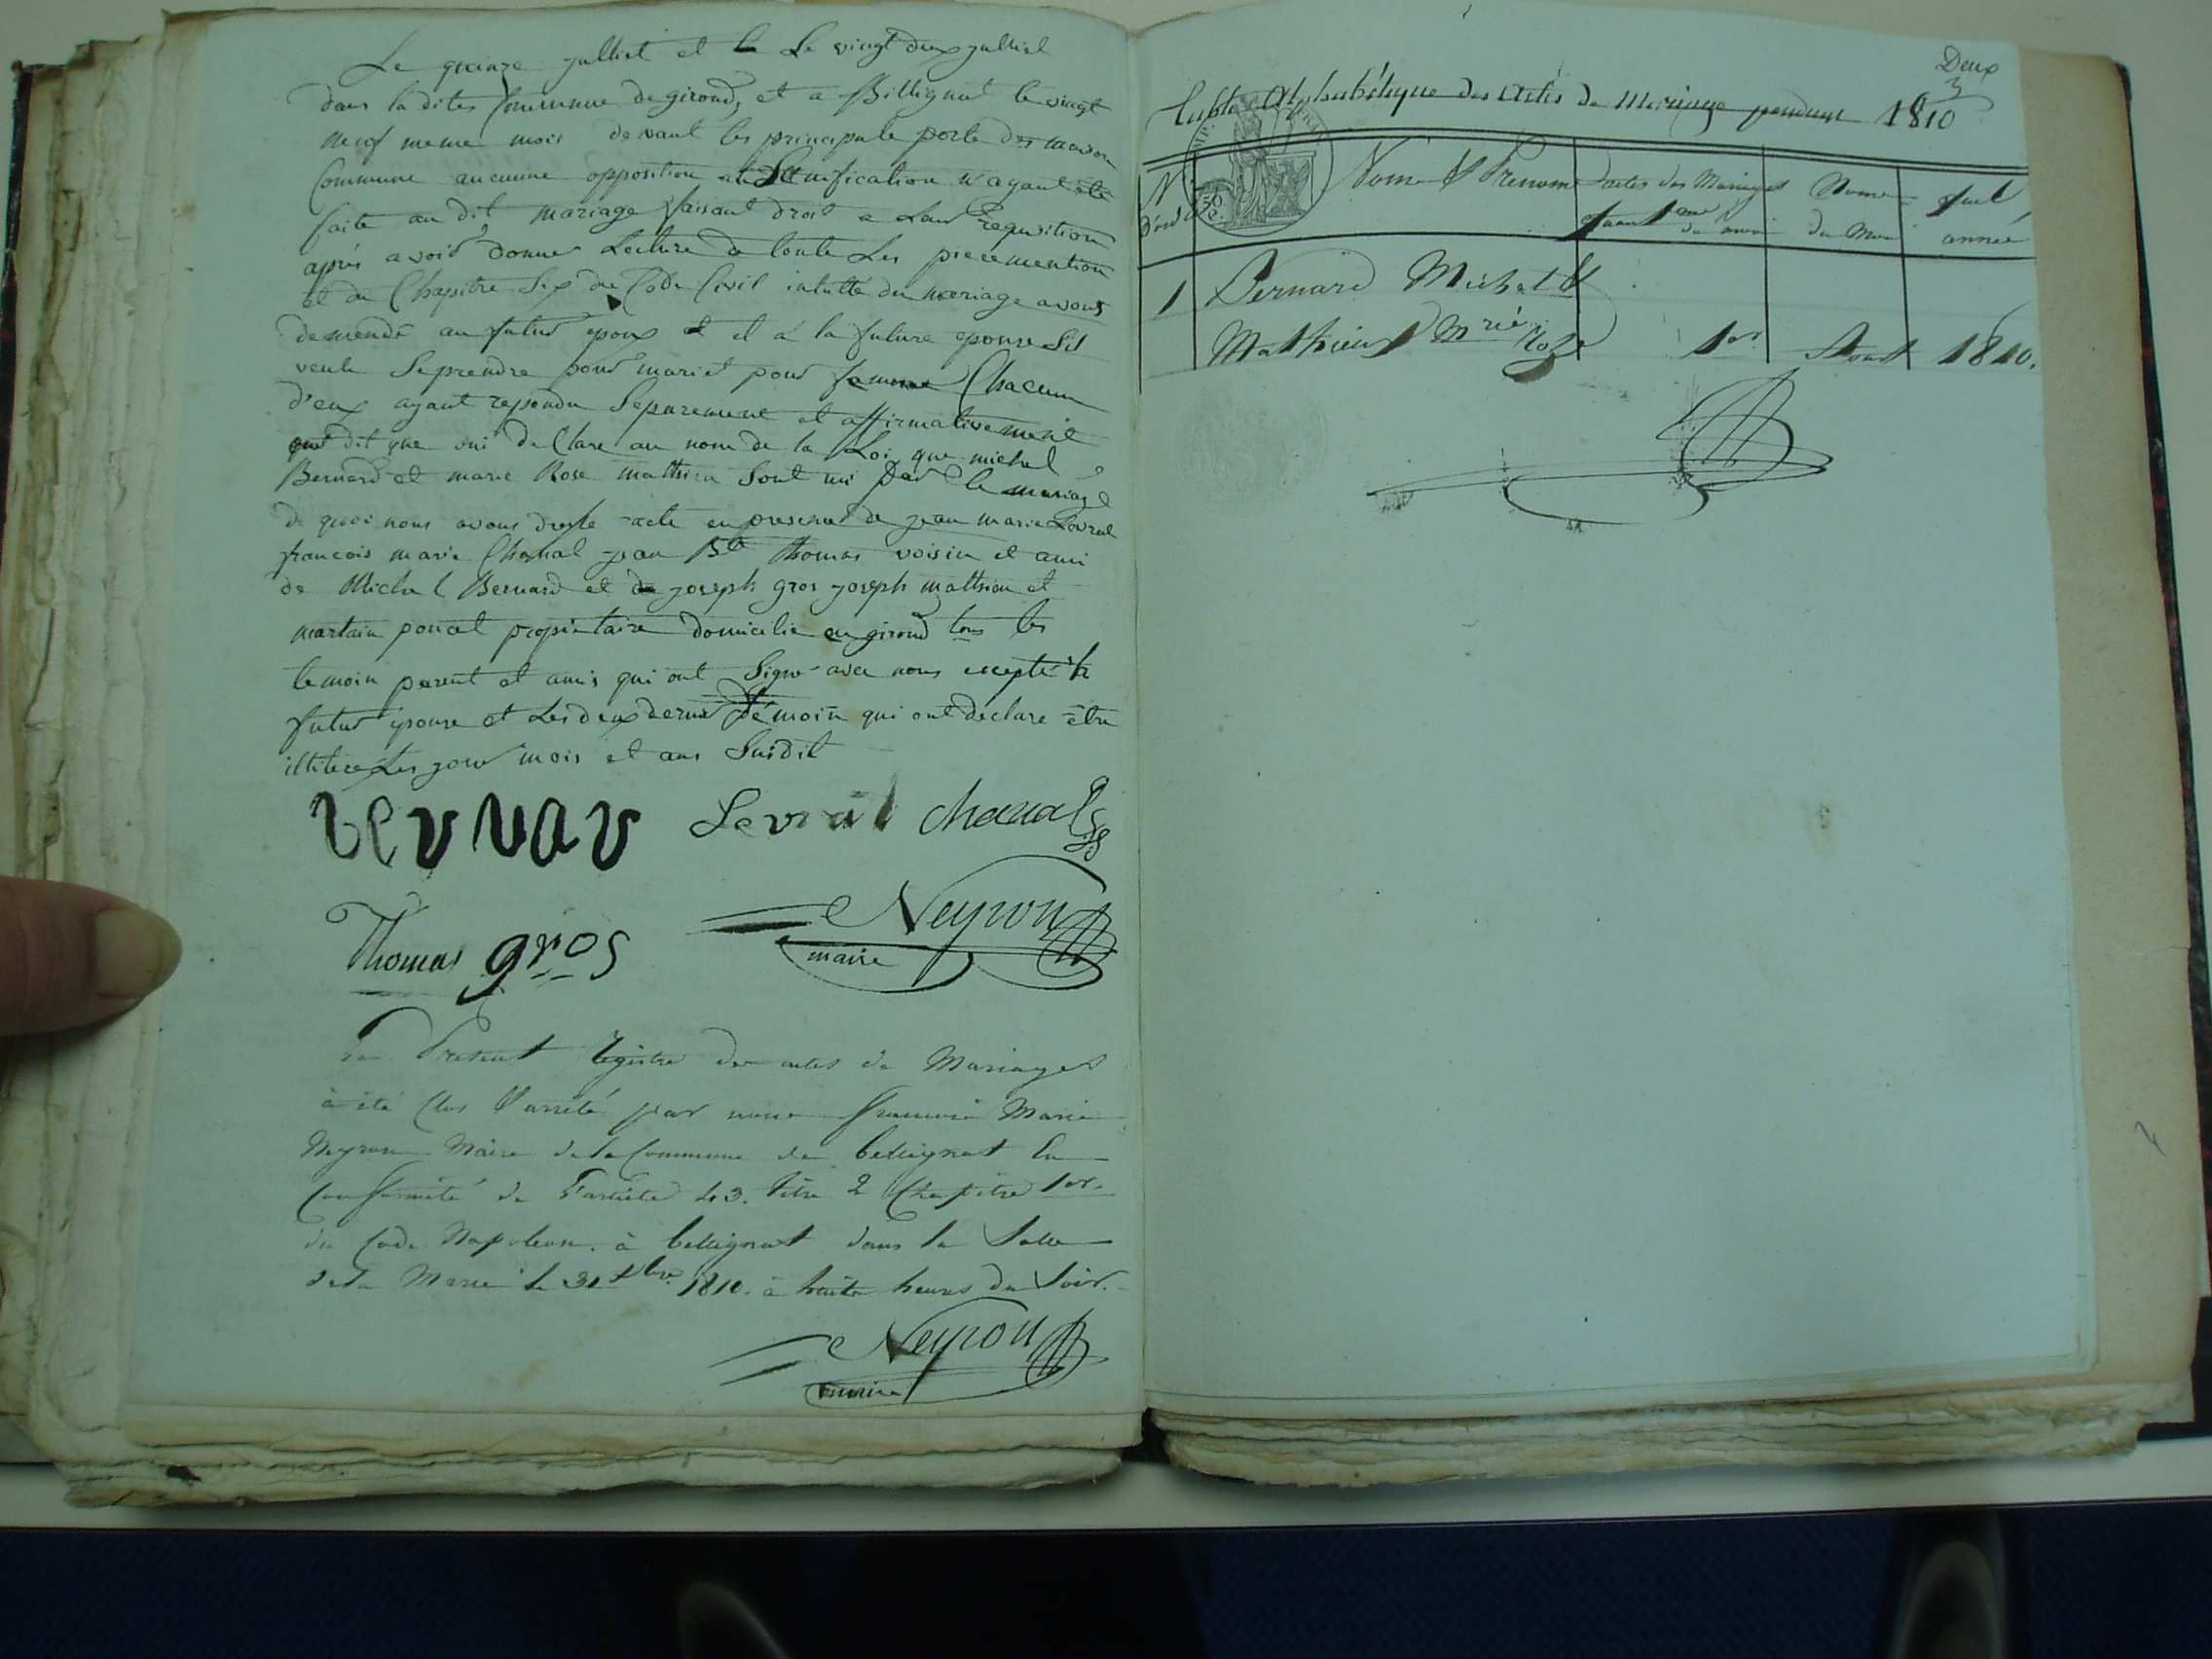 Le quinze julliet et le Le vingt deux julliet
dans la dites Commune de girond, et a Billignat le vingt
neuf meme mois devant les principale porte des maison
Commune aucunne opposition Signification n'ayant été
faite au dit mariage faisant droit a Leur Requisition
aprés avoir donner Lecture de toute Les piecemention
et du Chapitre Six du Code Civil intullé du mariage avons
demendé au futur epoux et il a la future epouse Sil
veule Se prendre pour mariet pour femme Chacun
d'eux ayant repondu Separement et affirmativement
dit que oui declare au nom de la Loi que michel
Bernard et marie Rose mathieu Sont uni par le mariage
de quoi nous avons dressé acte en presence de jean marie Levrat
francois marie Chanal jean Bte thomas voisin et ami
de Michel Bernard et de joseph gros joseph mathieu et
martain poncet propietaire domicelie en girond tous les
temoin parent et amis qui ont Signé avec nous excepté la
futur epouse et Les deux dernier temoin qui ont declare être
illiteré Les jour mois et ans Susdit
bernar Levrat chanal
Thomas gros Neyron
maire
Le Présent Registre des actes de Mariages
à été Clos & arrêté par nous francois Marie
Neyron Maire de la Commune de belleignat En
Conformité de l'article 43. titre 2 Chapitre 1er.
du Code Napoleon. à belleignat dans la Salle
de la Marie le 31 Xbre 1810. à huite heures du Soir.
Neyron
maire
Deux
3
Table Alphabétique des Actes de Mariage pendant 1810
N° d'ord Noms & Prenoms dates des Mariages Noms du Mois année
1 Bernard Michel &
Mathieux Mrie Roze 1er Aoust 1810.